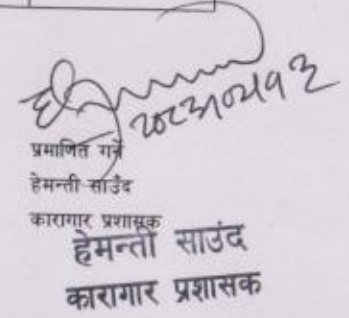 प्रमाणित गर्ने
हेमन्ती साउँद
कारागार प्रशासक
हेमन्ती साउंद
कारागार प्रशासक